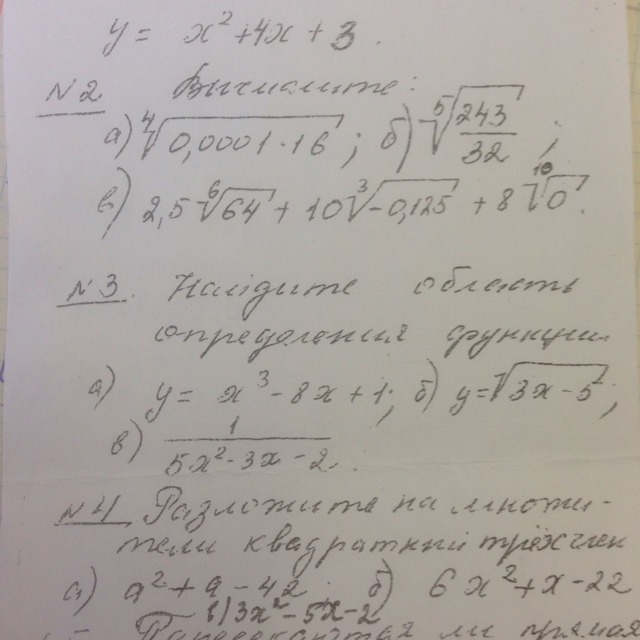 y = x² + 4x + 3.
№2 Вычислите:
а) ⁴√0,0001·16; б) ⁵√243/32;
в) 2,5 ⁶√64 + 10 ³√-0,125 + 8 ¹⁰√0.
№3. Найдите область
определения функции
а) y = x³ - 8x + 1; б) y = √3x - 5;
в) 1/5x² - 3x - 2.
№4 Разложите на множи-
тели квадратный трёхчлен
а) a² + a - 42 б) 6x² + x - 22
в) 3x² - 5x - 2
Пересекается ли прямая